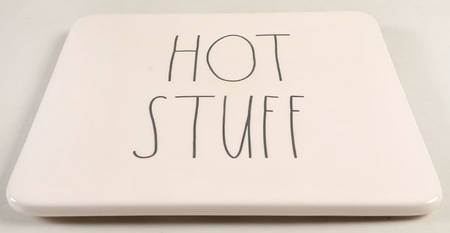 HOT
STUFF